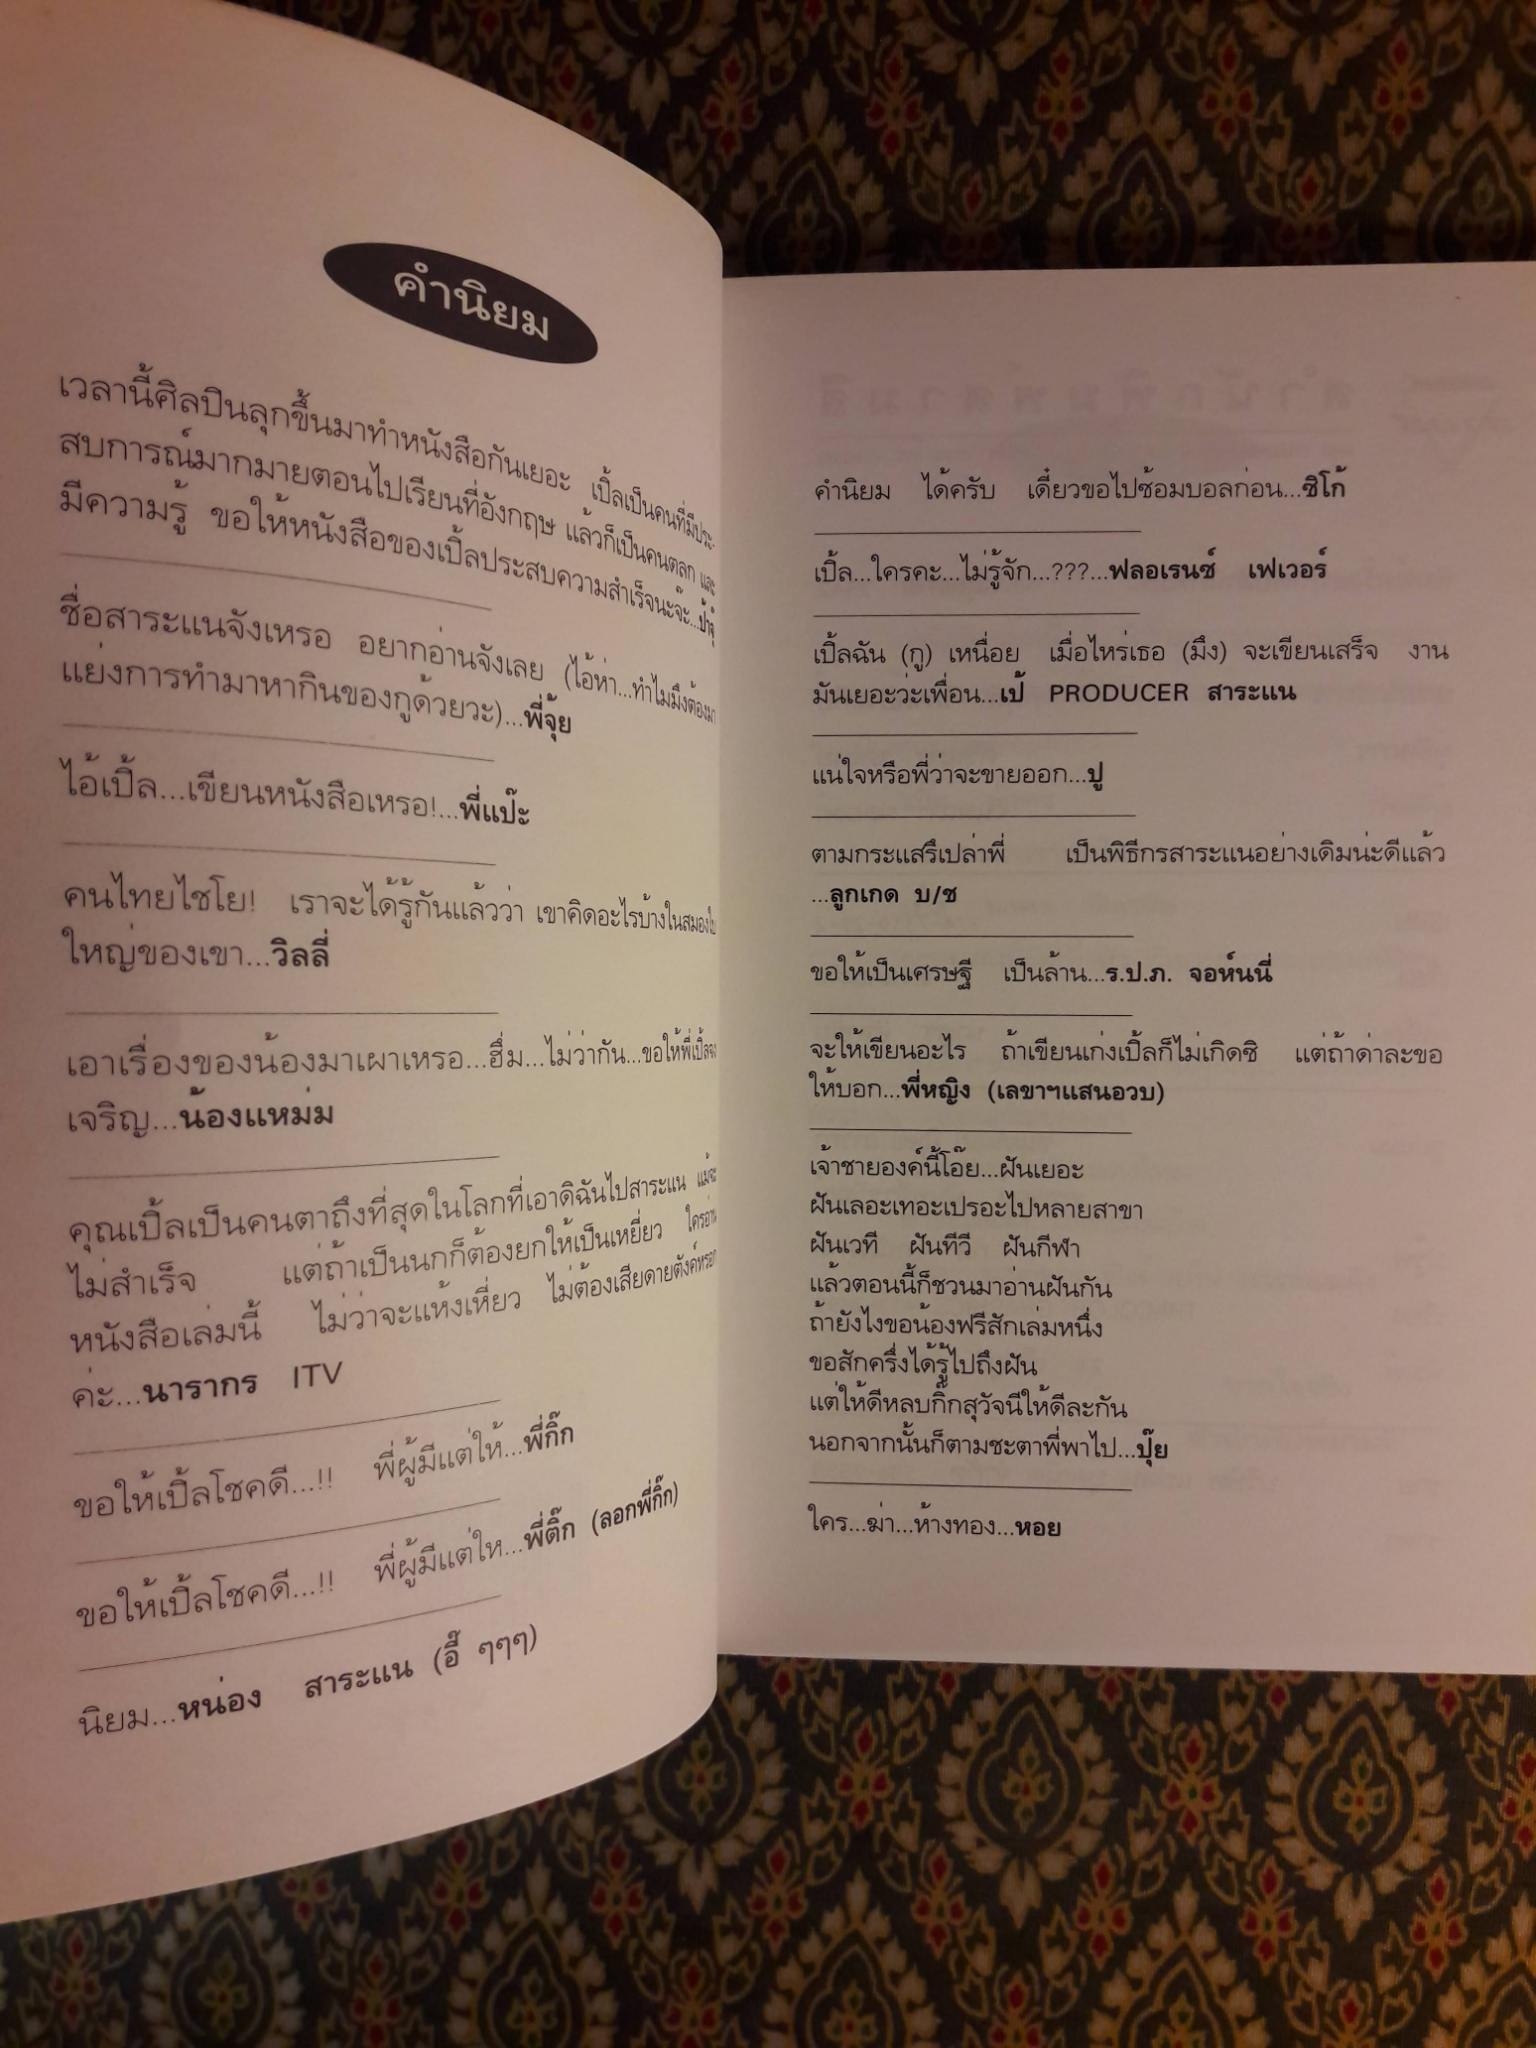 คำนิยม
เวลานี้ศิลปินลุกขึ้นมาทำหนังสือกันเยอะ เปิ้ลเป็นคนที่มีประ-
สบการณ์มากมายตอนไปเรียนที่อังกฤษ แล้วก็เป็นคนตลก และ
มีความรู้ ขอให้หนังสือของเปิ้ลประสบความสำเร็จนะจ๊ะ...ป้าจุ๋
ชื่อสาระแนจังเหรอ อยากอ่านจังเลย (ไอ้ห่า...ทำไมมึงต้องมา
แย่งการทำมาหากินของกูด้วยวะ)...พี่จุ้ย
ไอ้เปิ้ล...เขียนหนังสือเหรอ!...พี่แป๊ะ
คนไทยไชโย! เราจะได้รู้กันแล้วว่า เขาคิดอะไรบ้างในสมองใบ
ใหญ่ของเขา...วิลลี่
เอาเรื่องของน้องมาเผาเหรอ...ฮึ่ม...ไม่ว่ากัน...ขอให้พี่เปิ้ลจง
เจริญ...น้องแหม่ม
คุณเปิ้ลเป็นคนตาถึงที่สุดในโลกที่เอาดิฉันไปสาระแน แม้จะ
ไม่สำเร็จ แต่ถ้าเป็นนกก็ต้องยกให้เป็นเหยี่ยว ใครอ่าน
หนังสือเล่มนี้ ไม่ว่าจะแห้งเหี่ยว ไม่ต้องเสียดายตังค์หรอก
ค่ะ...นารากร ITV
ขอให้เปิ้ลโชคดี...!! พี่ผู้มีแต่ให้...พี่กิ๊ก
ขอให้เปิ้ลโชคดี...!! พี่ผู้มีแต่ให...พี่ติ๊ก (ลอกพี่กิ๊ก)
นิยม...หน่อง สาระแน (อี๊ ๆๆๆ)
คำนิยม ได้ครับ เดี๋ยวขอไปซ้อมบอลก่อน...ซิโก้
เปิ้ล...ใครคะ...ไม่รู้จัก...???...ฟลอเรนซ์ เฟเวอร์
เปิ้ลฉัน (กู) เหนื่อย เมื่อไหร่เธอ (มึง) จะเขียนเสร็จ งาน
มันเยอะว่ะเพื่อน...เป้ PRODUCER สาระแน
แน่ใจหรือพี่ว่าจะขายออก...ปู
ตามกระแสรึเปล่าพี่ เป็นพิธีกรสาระแนอย่างเดิมน่ะดีแล้ว
...ลูกเกด บ/ช
ขอให้เป็นเศรษฐี เป็นล้าน...ร.ป.ภ. จอห์นนี่
จะให้เขียนอะไร ถ้าเขียนเก่งเปิ้ลก็ไม่เกิดซิ แต่ถ้าด่าละขอ
ให้บอก...พี่หญิง (เลขาฯแสนอวบ)
เจ้าชายองค์นี้โอ๊ย...ฝันเยอะ
ฝันเลอะเทอะเปรอะไปหลายสาขา
ฝันเวที ฝันทีวี ฝันกีฬา
แล้วตอนนี้ก็ชวนมาอ่านฝันกัน
ถ้ายังไงขอน้องฟรีสักเล่มหนึ่ง
ขอสักครึ่งได้รู้ไปถึงฝัน
แต่ให้ดีหลบกิ๊กสุวัจนีให้ดีละกัน
นอกจากนั้นก็ตามชะตาพี่พาไป...ปุ๊ย
ใคร...ฆ่า...ห้างทอง...หอย